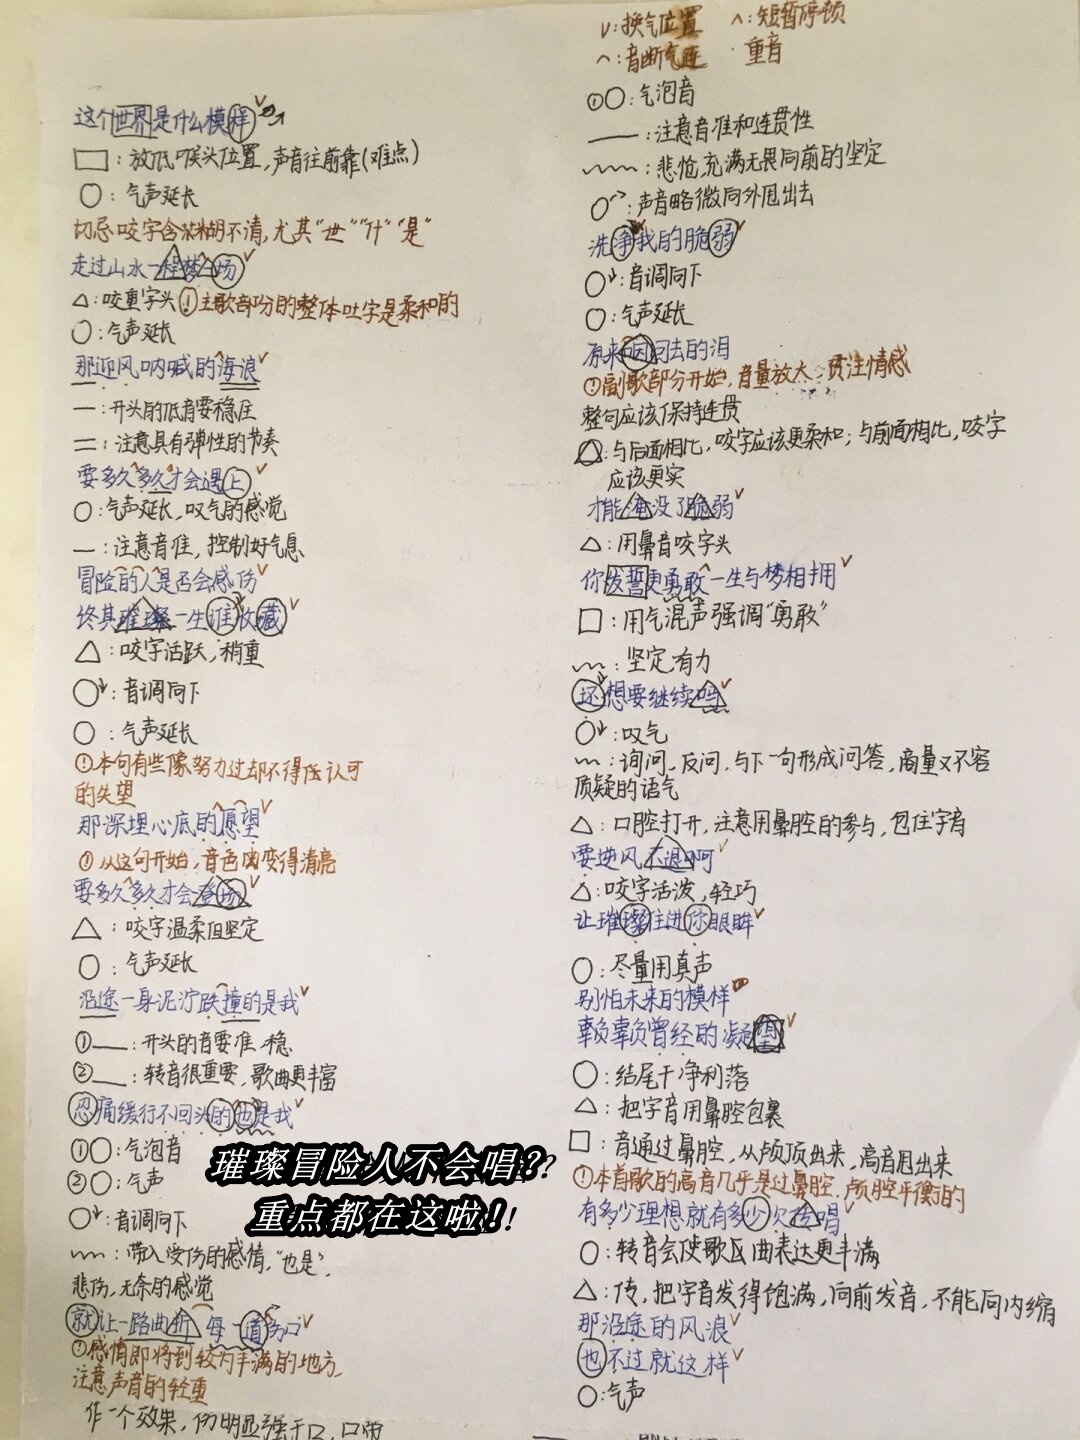 这个世界是什么模样
□：放低喉头位置，声音往前靠(难点)
○：气声延长
切忌咬字含糊不清，尤其“世”“什”“是”
走过山水一程梦一场
△：咬重字头①主歌部分的整体吐字是柔和的
○：气声延长
那迎风呐喊的海浪
一：开头的低音要稳住
二：注意具有弹性的节奏
要多久多久才会遇上
○：气声延长，叹气的感觉
一：注意音准，控制好气息
冒险的人是否会感伤
终其璀璨一生谁收藏
△：咬字活跃，稍重
○：音调向下
○：气声延长
①本句有些像努力过却不得到认可
的失望
那深埋心底的愿望
①从这句开始，音色变得清亮
要多久多久才会登场
△：咬字温柔但坚定
○：气声延长
沿途一身泥泞跌撞的是我
①—：开头的音要准、稳
②—：转音很重要，歌曲更丰富
忍痛缓行不回头的也是我
①○：气泡音
②○：气声
○：音调向下
~~：带入受伤的感情，“也是”，
悲伤，无奈的感觉
就让一路曲折 每一道伤口
①感情即将到较为丰满的地方
注意声音的轻重
作一个效果，伤明显强于口，口
v：换气位置 ∧：短暂停顿
⌒：音断气连 ·重音
①○：气泡音
—：注意音准和连贯性
~~：悲怆，充满无畏向前的坚定
○：声音略微向外甩出去
洗净我的脆弱
○：音调向下
○：气声延长
原来咽回去的泪
①副歌部分开始，音量放大，贯注情感
整句应该保持连贯
△：与后面相比，咬字应该更柔和；与前面相比，咬字
应该更实
才能淹没了脆弱
△：用鼻音咬字头
你发誓更勇敢一生与梦相拥
□：用气混声强调“勇敢”
~~：坚定，有力
还想要继续吗
○：叹气
~~：询问、反问，与下一句形成问答，商量又不容
质疑的语气
△：口腔打开，注意用鼻腔的参与，包住字音
要逆风不退啊
△：咬字活泼，轻巧
让璀璨住进你眼眸
○：尽量用真声
别怕未来的模样
辜负辜负曾经的凝望
○：结尾干净利落
△：把字音用鼻腔包裹
□：音通过鼻腔，从颅顶出来，高音甩出来
①本首歌的高音几乎是过鼻腔，颅腔平衡的
有多少理想就有多少次传唱
○：转音会使歌曲表达更丰满
△：传，把字音发得饱满，向前发音，不能向内缩
那沿途的风浪
也不过就这样
○：气声
璀璨冒险人不会唱？?
重点都在这啦！!